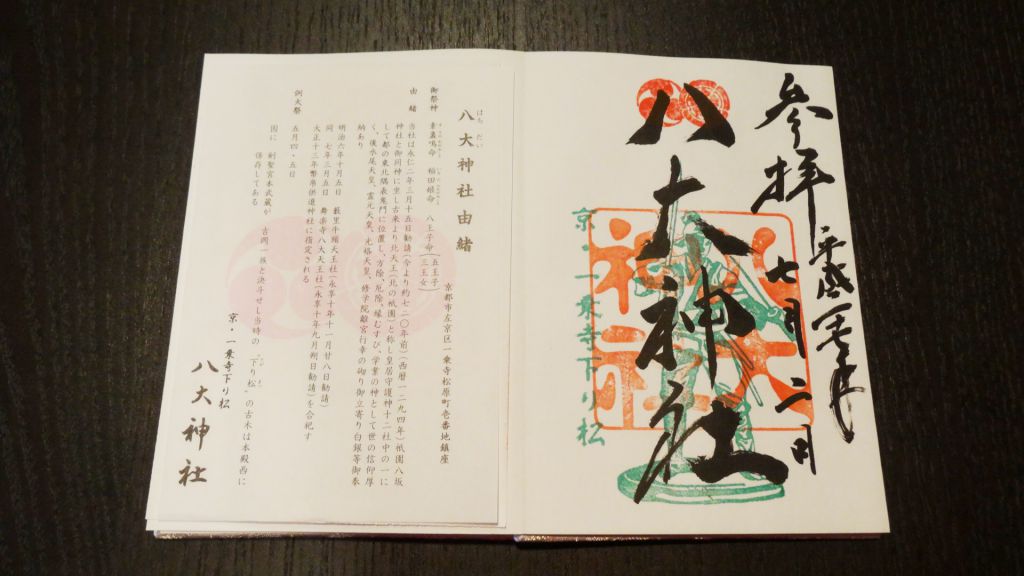 参拝
平成二十七年
七月二日
八大神社
八大神社
京・一乗寺下り松
はち だい
八大神社由緒
京都市左京区一乗寺松原町壱番地鎮座
御祭神 素盞嗚命 稲田姫命 八王子命(五王子 三王女)
由緒 当社は永仁二年三月十五日勧請(今より約七二〇年前)(西暦一二九四年)祇園八坂
神社と御同神に坐し古来より北天王(北の祇園)と称し皇居守護神十二社中の一に
して都の東北隅表鬼門に位置し、方除、厄除、縁むすび、学業の神として世の信仰厚
く、後水尾天皇、霊元天皇、光格天皇、修学院離宮行幸の砌り御立寄り白銀等御奉
納あり
明治六年十月五日 藪里牛頭天王社(永享十年十一月廿八日勧請)
同 七年三月五日 舞楽寺八大天王社(永享十年九月朔日勧請)を合祀す
大正十三年幣帛供進神社に指定される
例大祭 五月四・五日
因に 剣聖宮本武蔵が 吉岡一族と決斗せし当時の“下り松”の古木は本殿西に
保存してある
京・一乗寺下り松
八大神社